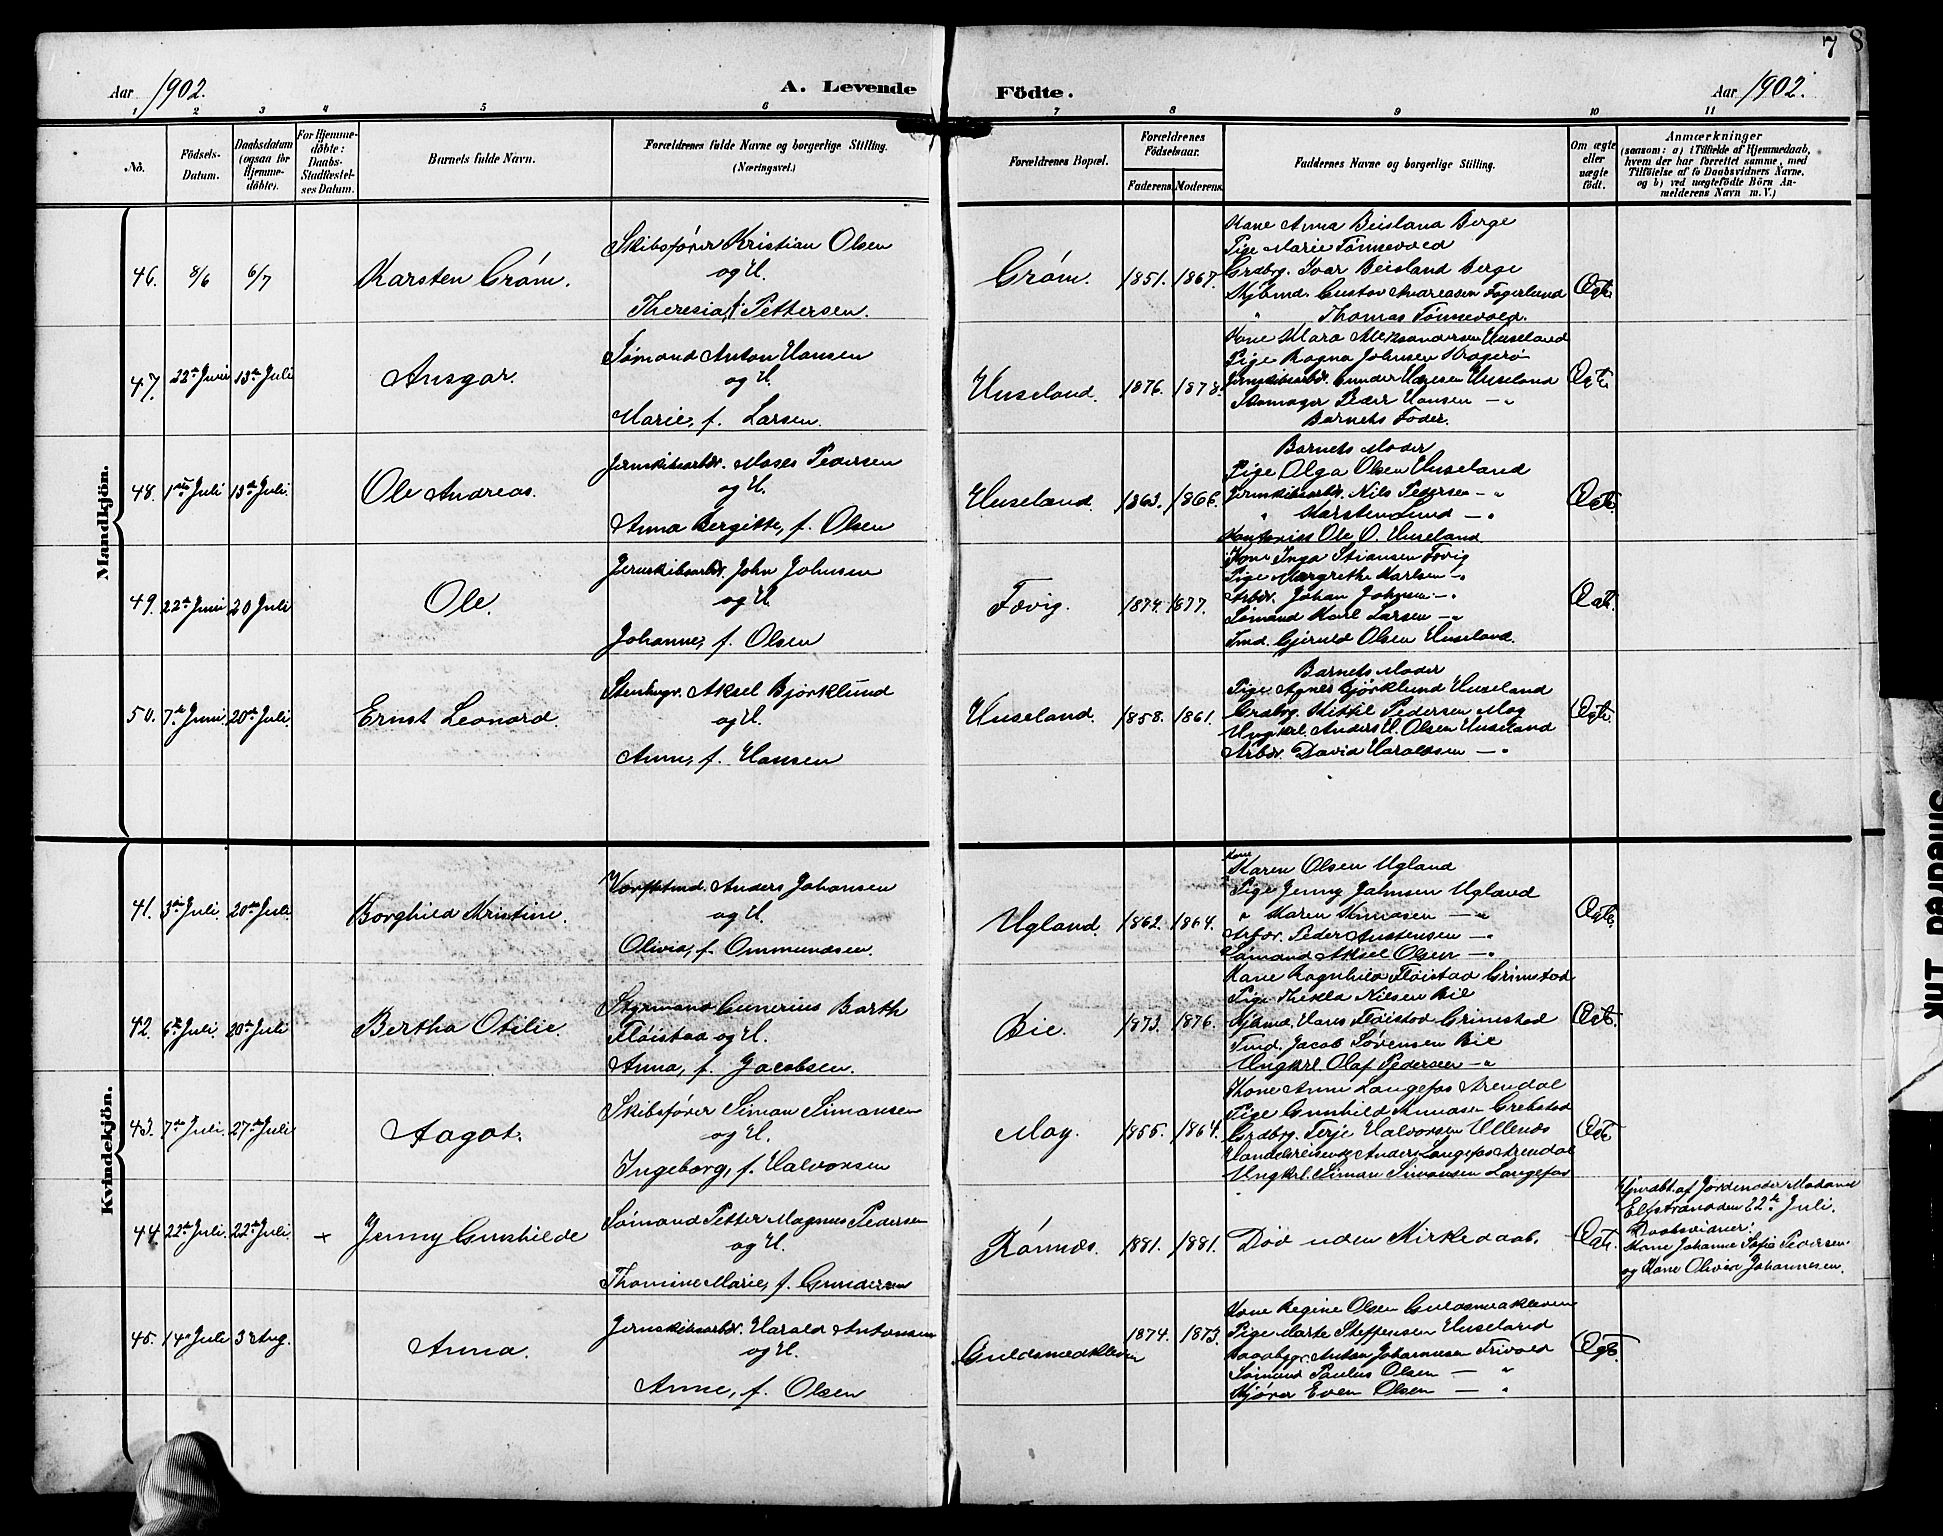 7 8
Aar 1902.
A. Levende Födte.
Aar 1902.
1 2 3 4 5 6 7 8 9 10 11
No.
Födsels-Datum.
Daabsdatum (ogsaa for Hjemme-döbte).
For Hjemme-döbte: Daabs-Stadfæstel-ses Datum.
Barnets fulde Navn.
Forældrenes fulde Navne og borgerlige Stilling. (Næringsvei.)
Forældrenes Bopæl.
Forældrenes Födselsaar.
Faderens. Moderens.
Faddernes Navne og borgerlige Stilling.
Om ægte eller uægte födt.
Anmærkninger
(saasom: a) i Tilfælde af Hjemmedaab,
hvem der har forrettet samme, med
Tilföielse af to Daabsvidners Navne,
og b) ved uægtefödte Börn An-
melderens Navn m. V.)
Mandkjön.
46. 8/6 6/7 Karsten Grøm.
Skibsfører Kristian Olsen
og H.
Theresia f. Pettersen.
Grøm. 1851. 1867.
Kone Anna Beisland Berge
Pige Marie Tønnevold
Grdbrg. Ivar Beisland Berge
Skjbmd. Gustav Andreasen Fagerlund
" Thomas Tønnevold.
Ægte
47. 22de Juni 13de Juli Ansgar.
Sømand Anton Hansen
og H.
Marie, f. Larsen.
Huseland. 1876. 1878.
Kone Mara Aleksandersen Huseland
Pige Ragna Johnsen Kragerø
Jernskibsarbdr. Gunder Hansen Huseland
Skomager Peder Hansen — "
Barnets Fader.
Ægte
48. 1ste Juli 13de Juli. Ole Andreas.
Jernskibsarbdr. Moses Pedersen
og H.
Anna Bergitte, f. Olsen
Huseland. 1863. 1866.
Barnets Moder
Pige Olga Olsen Huseland
Jernskibsarbdr. Nils Pedersen — "
" Karsten Lund — "
Kontorist Ole O. Huseland.
Ægte
49. 22de Juni 20 Juli Ole.
Jernskibsarbdr. John Johnsen
og H.
Johanne, f. Olsen
Fevig. 1874. 1877.
Kone Inga Stiansen Fevig
Pige Margrethe Karlsen — "
Arbdr. Johan Johnsen — "
Sømand Karl Larsen — "
Tmd. Gjeruld Olsen Huseland.
Ægte
50. 7de Juni 20de Juli. Ernst Leonard.
Stenhugr. Aksel Bjørklund
og H.
Anne, f. Hansen
Huseland. 1858. 1861.
Barnets Moder
Pige Agnes Bjørklund Huseland
Grdbrg. Kittil Pedersen Moy
Ungkrl. Anders H. Olsen Huseland
Arbdr. David Haraldsen — "
Ægte
Kvindekjön.
41. 3de Juli. 20de Juli Borghild Kristine.
Værftstmd. Anders Johansen
og H.
Olivia, f. Ommundsen.
Ugland. 1862. 1864.
Kone Karen Olsen Ugland
Pige Jenny Johnsen Ugland
" Karen Knudsen — "
Arbdr. Peder Austensen — "
Sømand Aksel Olsen — "
Ægte
42. 6te Juli. 20de Juli Bertha Otilie.
Styrmand Gunerius Barth
Fløistad og H.
Anna, f. Jacobsen.
Bie. 1873. 1876.
Kone Ragnhild Fløistad Grimstad
Pige Thekla Nielsen Bie
Kjbmd. Hans Fløistad Grimstad
Tmd. Jacob Sørensen Bie
Ungkrl. Olaf Pedersen — "
Ægte
43. 7de Juli. 27de Juli Aagot.
Skibsfører Simon Simonsen
og H.
Ingeborg, f. Halvorsen
Moy. 1855. 1864.
Kone Anne Langefos Arendal
Pige Gunhild Knudsen Grebstad
Grdbrg. Terje Halvorsen Ullenæs
Handelsreisende Anders Langefos Arendal
Ungkrl. Simon Simonsen Langefos
Ægte
44. 22de Juli. 22de Juli. + Jenny Gunhilde
Sømand Petter Magnus Pedersen
og H.
Thomine Marie, f. Gundersen
Rønnes. 1881. 1881. Død uden Kirkedaab. Ægte
Hjmdbt. af Jordmoder Madam
Elfstrand den 22de Juli.
Daabsvidner:
Kone Johanne Sofie Pedersen
og Kone Olivia Johannesen.
45. 14de Juli 3 Aug. Anna.
Jernskibsarbdr. Harald Antonsen
og H.
Anne, f. Olsen
Guldsmedkleven 1874. 1873.
Kone Regine Olsen Guldsmedkleven
Pige Marte Steffensen Huseland
Baadbygr. Anton Johannesen Frivold
Sømand Paulus Olsen — "
Kjører Even Olsen — "
Ægte